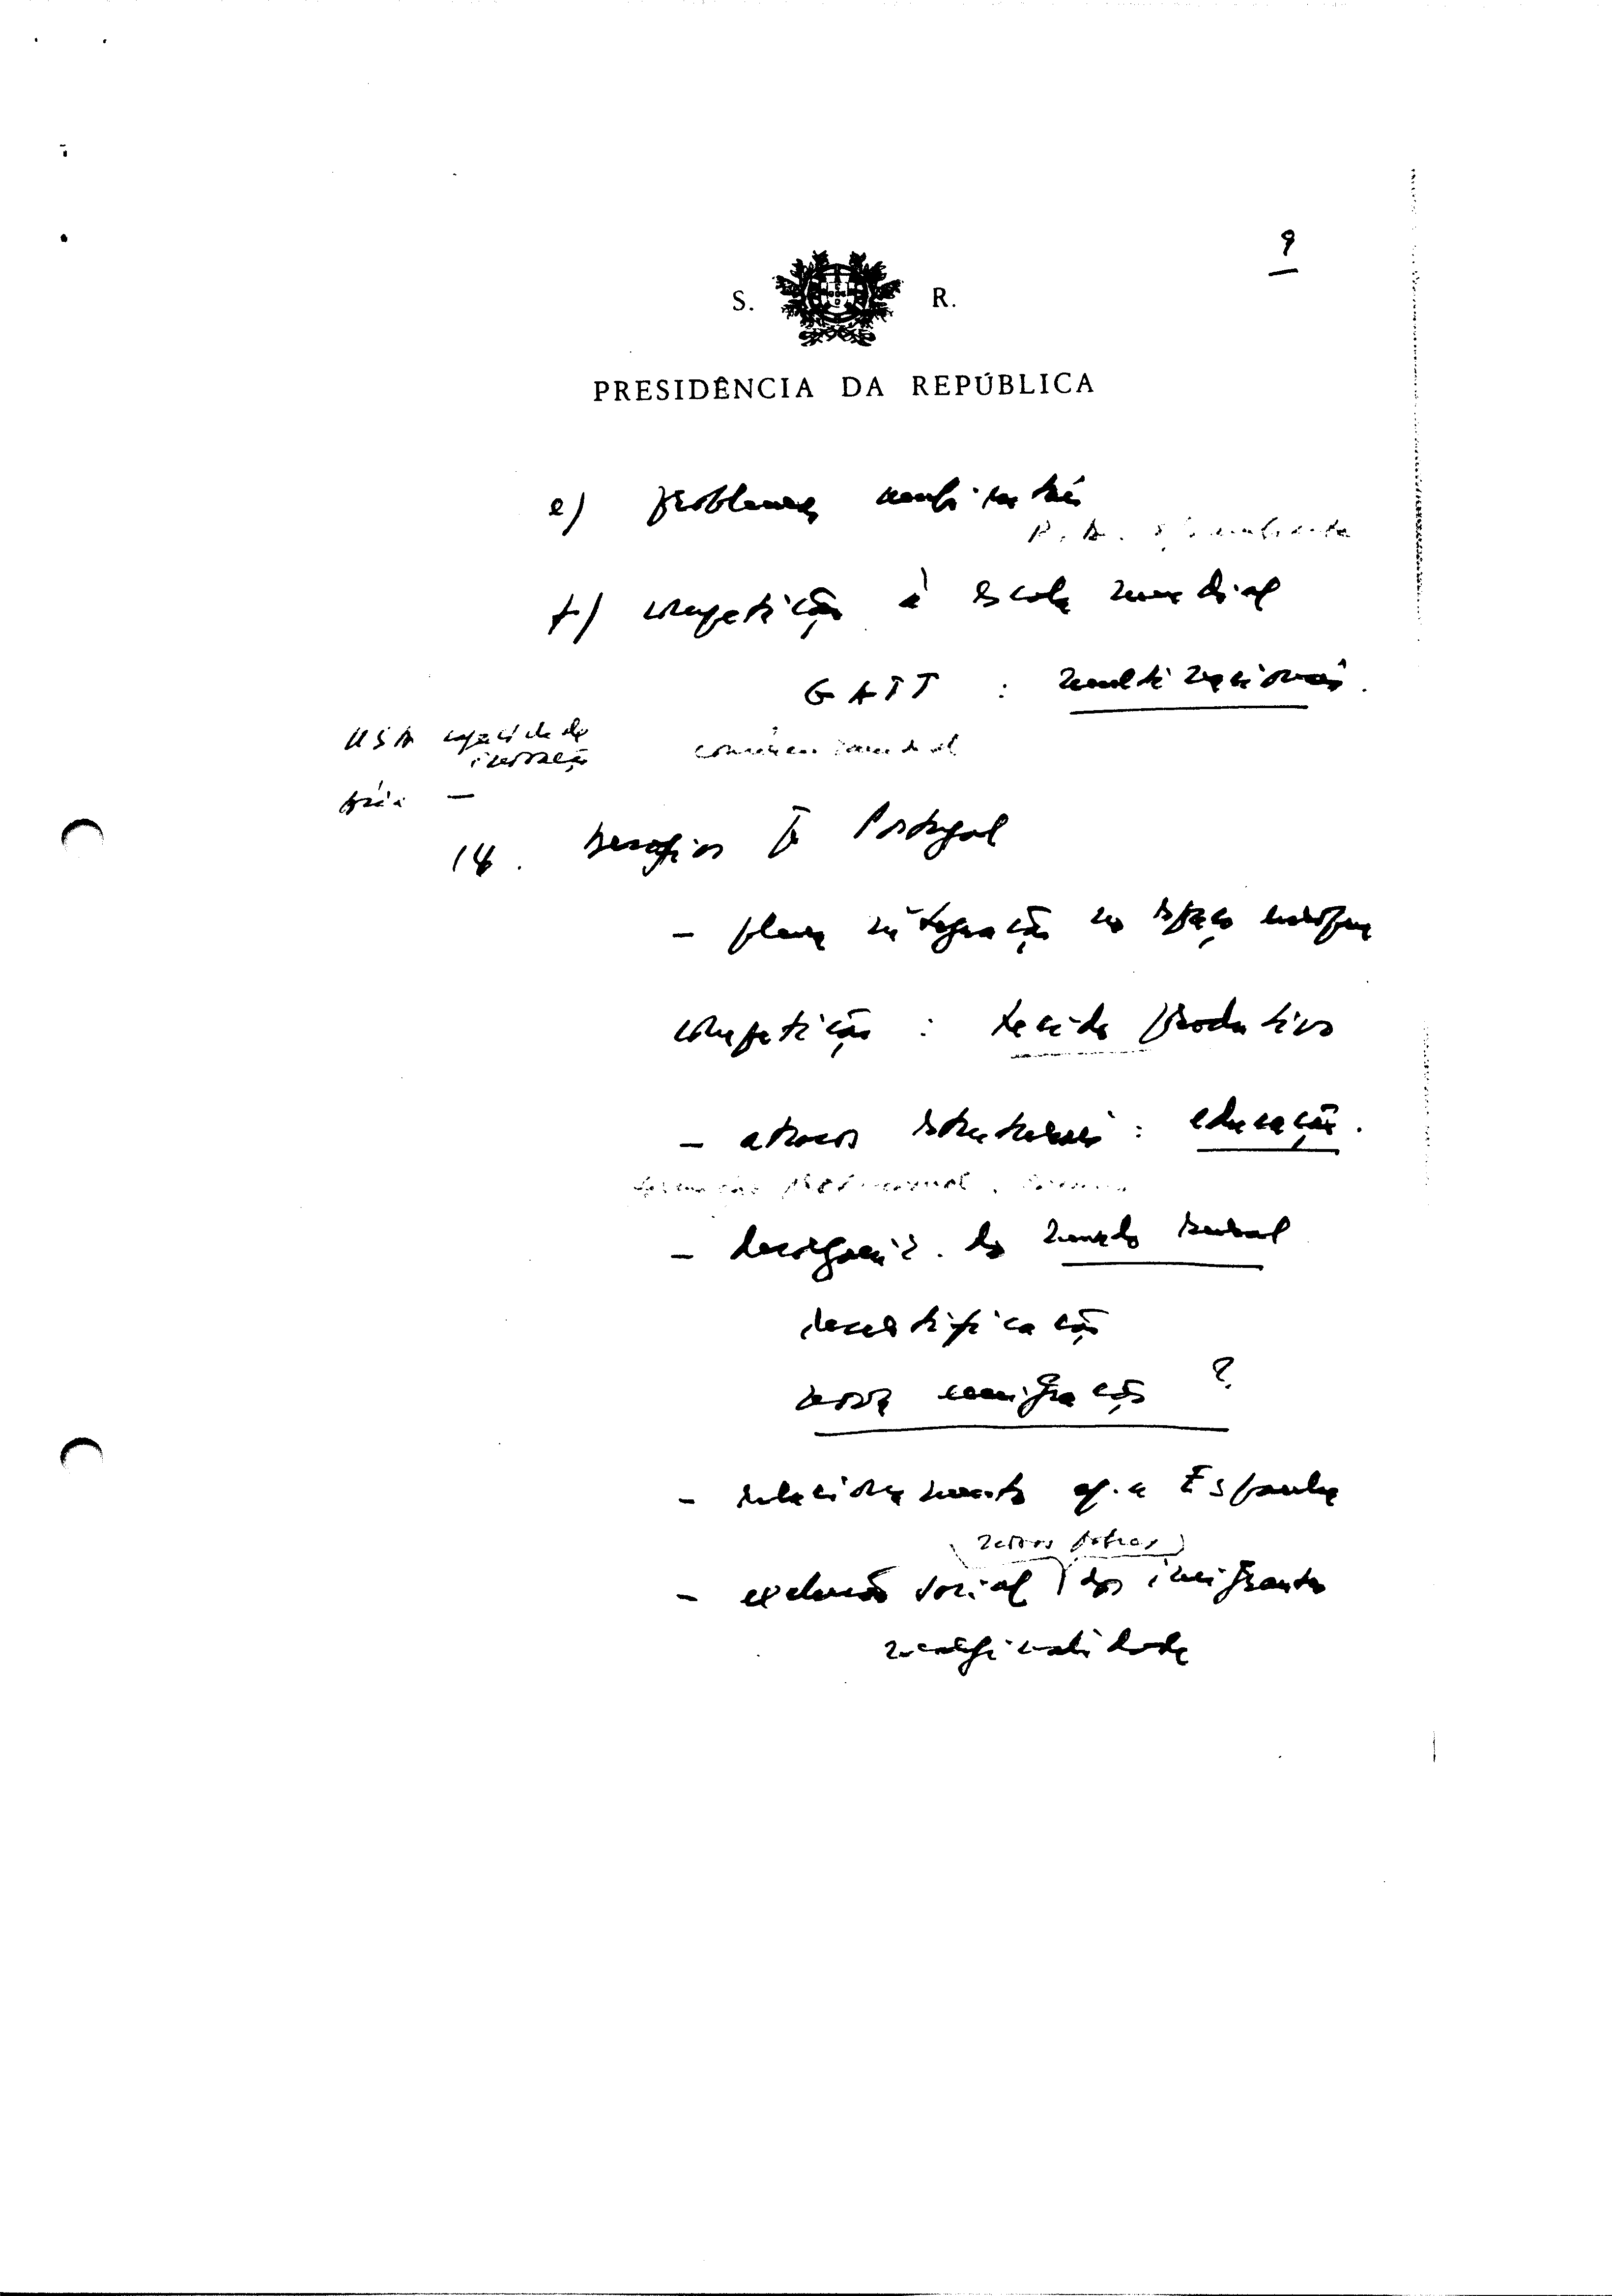 9
S. R.
PRESIDÊNCIA DA REPÚBLICA
e) problemas ambientais
f) competição à escala mundial
GATT : multinacionais.
USA capacidade de
inovação
comércio mundial
Ásia —
14. Desafios a Portugal
- plena integração no espaço europeu
competição : tecido produtivo
- atrasos estruturais : educação.
formação profissional,
- desorganiz. do mundo rural
desertificação
nova emigração ?
- relacionamento c/ a Espanha
novos pobres
- exclusão social dos imigrantes
marginalidade